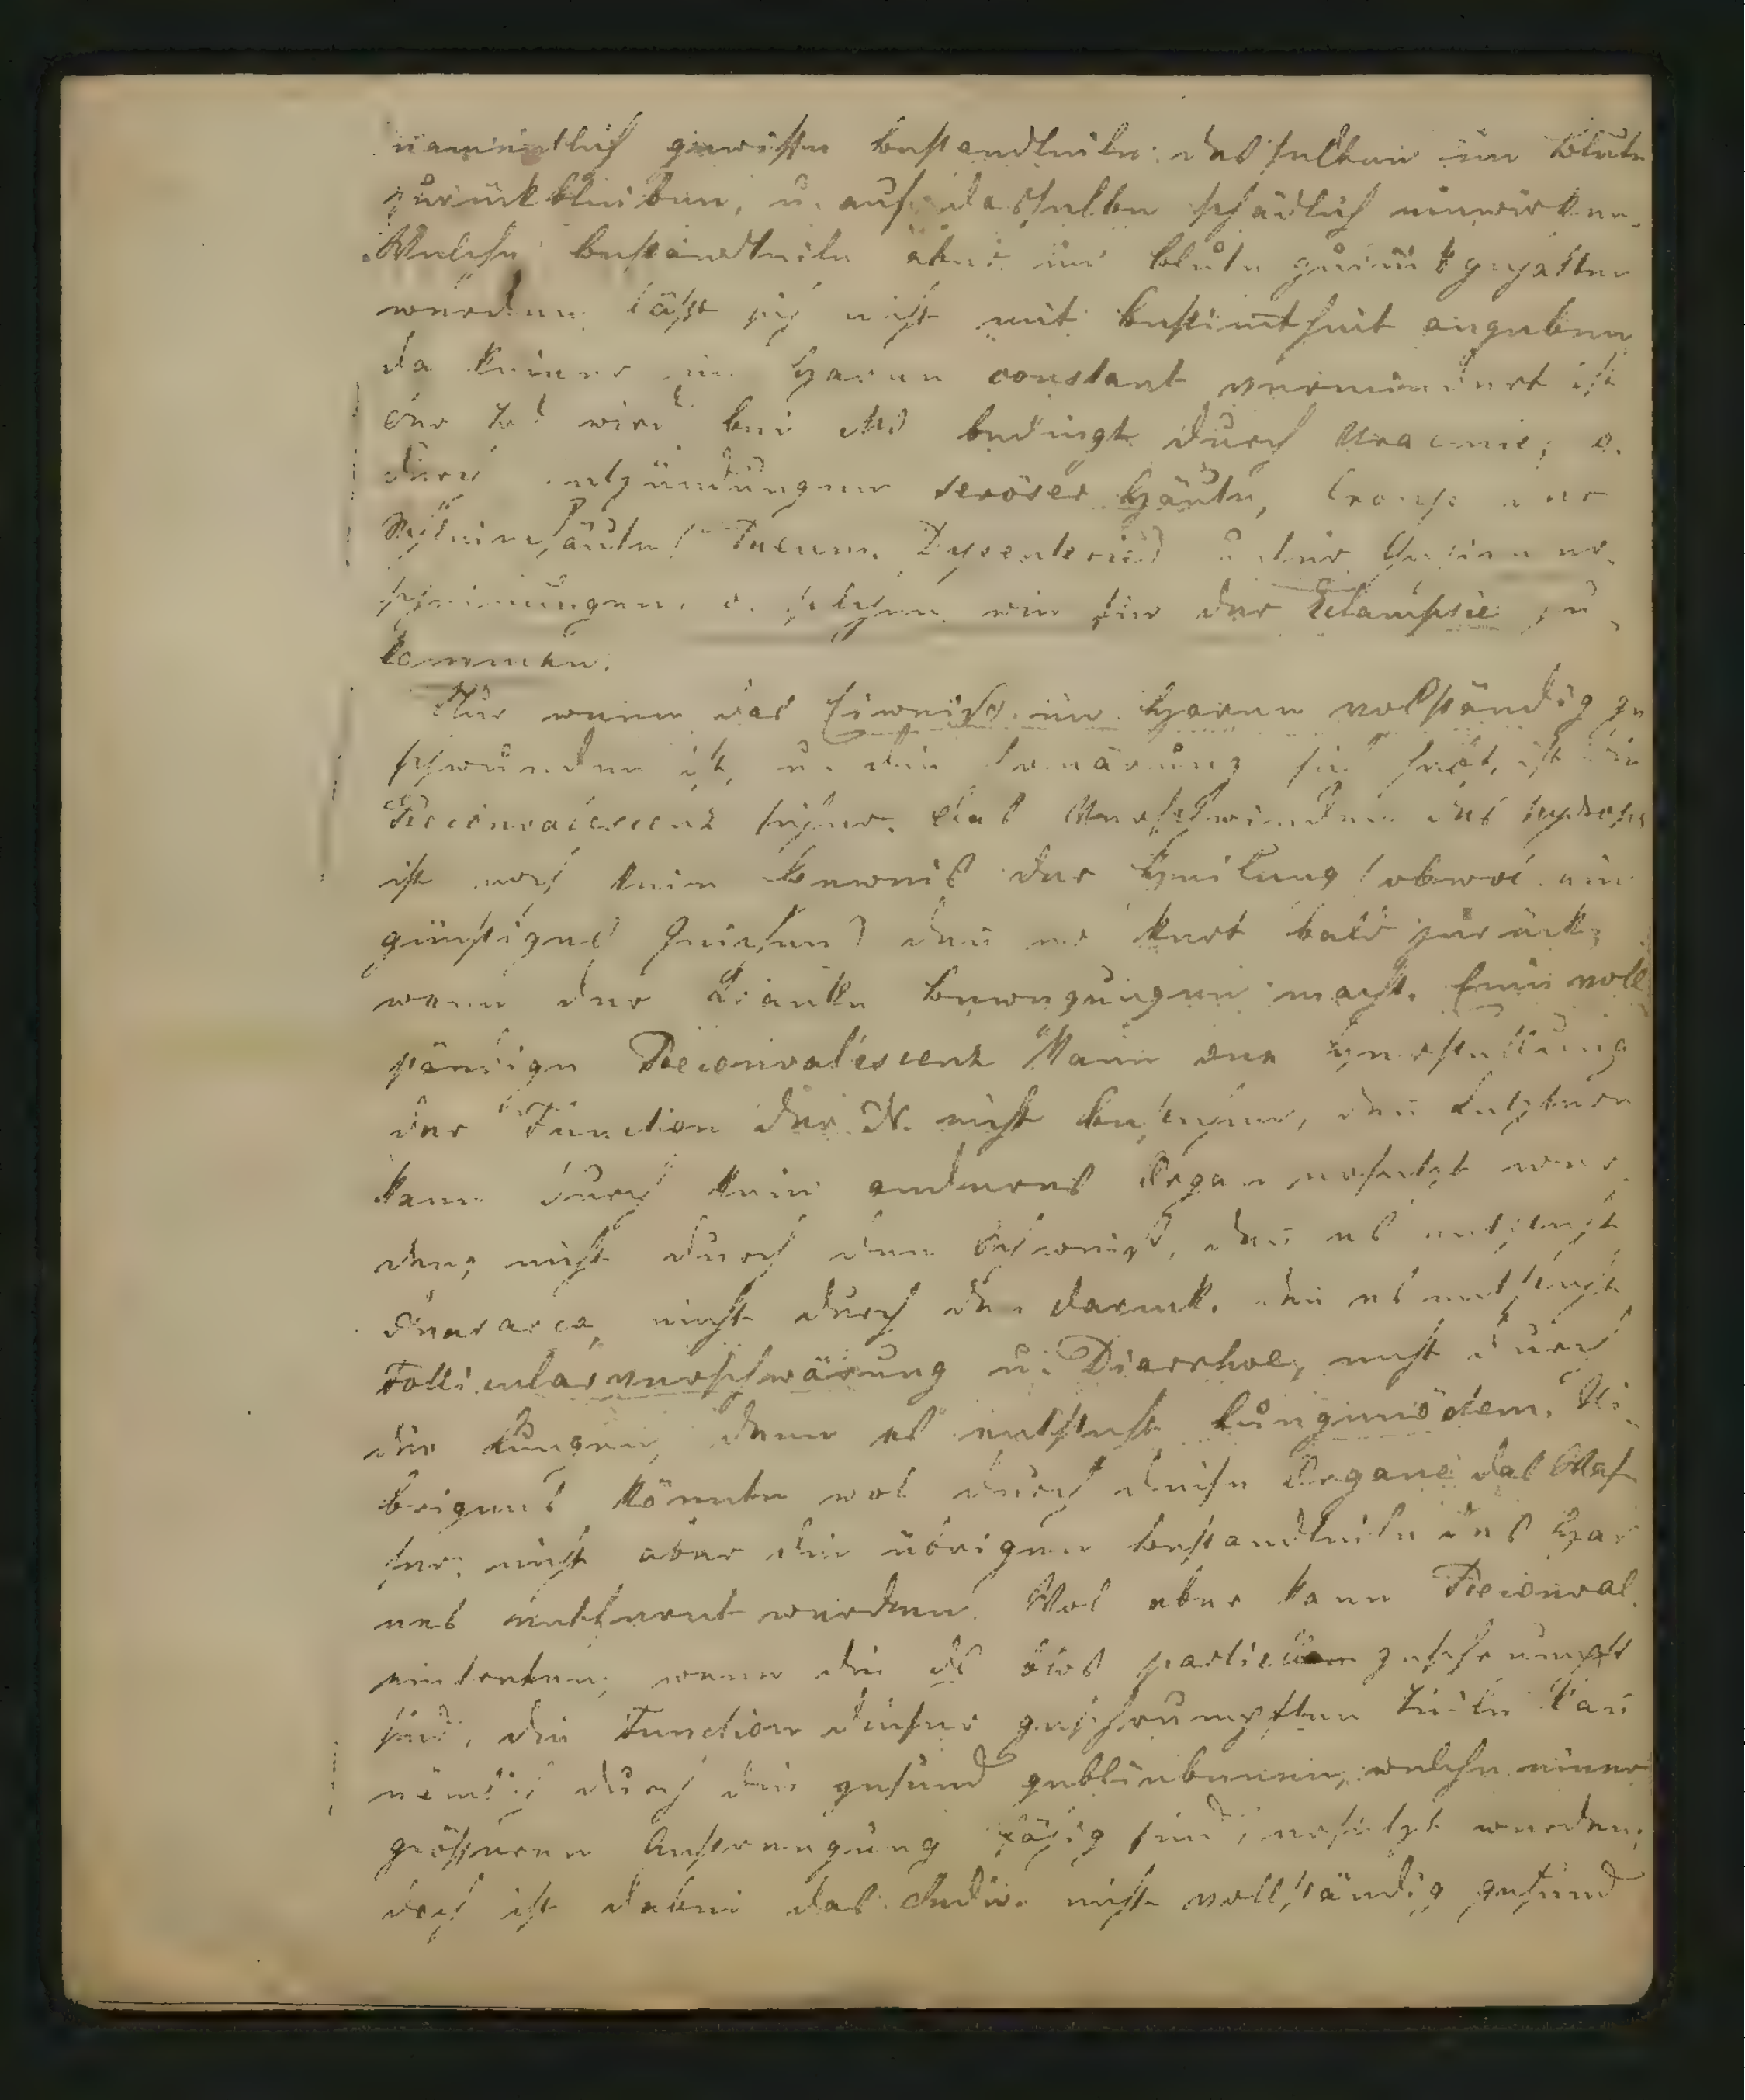 namentlich gewisse bestandteile desselben im blute
zurückbleiben, u. auf dasselbe schädlich einwirken.
Welche bestandteile aber im blute zurückgehalten
werden, läßt sich nicht mit bestimtheit angeben
da keiner im Harne constant vermindert ist
der Tod wird bei bedingt durch Uraemie, o.
durch entzündungen seröser Häute, Croup der
Schleimhäute (Pneum. Dysenterie) unter Gehirner-
scheinungen, o. sehen wir hier der Eclampsie zu
kommen.
Nur wenn das Eiweiß im Harne volständig ge
schwunden ist, u. die ernärung sich hebt, ist die
Reconvalescenz sicher. das Verschwinden des hydrops
ist noch kein beweis der Heilung (obwol ein
günstiges Zeichen) den er kert bald zurück,
wenn der Kranke bewegungen macht. Eine voll
ständige Reconvalescenz kann one Herstellung
der Function der N. nicht bestehen, den letztere
kann durch kein anderes Organ ersetzt wer
den, nicht durch den Schweiß, den es entsteht
Anasarca, nicht durch den darmk. den es entsteht
Follicularverschwärung u. Diarrhoe, nicht durch
die Lungen, denn es entsteht Lungenödem. Ü
brigens könnte wol durch diese Organe das Waß
ser, nicht aber die übrigen bestandteile des Har
nes entfernt werden. Wol aber kann Reconval.
eintreten, wenn die blos partiell geschrumpft
sind, die Function dieser geschrumpften Teile kan
nämlich durch die gesund gebliebenen, welche einer
größeren Anstrengung fähig sind, ersetzt werden,
doch ist dabei das Indiv. nicht vollständig gesund